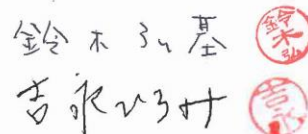 鈴木弘基 鈴木弘
吉永ひろみ 吉永